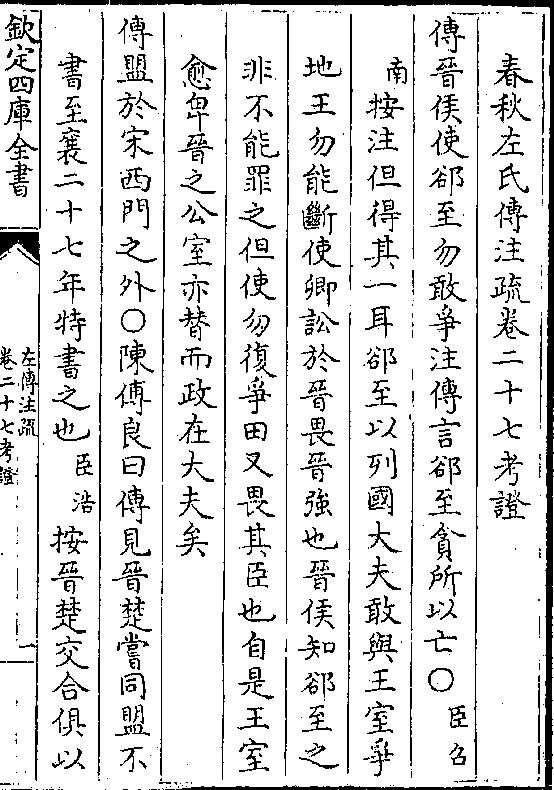 春秋左氏傳注疏卷二十七考證
傳晉侯使郤至勿敢爭注傳言郤至貪所以亡〇臣召
南按注但得其一耳郤至以列國大夫敢與王室爭
地王勿能斷使卿訟於晉畏晉強也晉侯知郤至之
非不能罪之但使勿復爭田又畏其臣也自是王室
愈卑晉之公室亦替而政在大夫矣
傳盟於宋西門之外〇陳傅良曰傳見晉楚嘗同盟不
書至襄二十七年特書之也臣浩按晉楚交合俱以
欽定四庫全書
左傳注疏
卷二十七考證
一